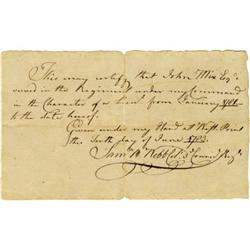 This may certify that John Mix Esqr
served in the Regiment under my Command
in the Character of a Lieut. from January
to the date hereof.
Given under my Hand at West Point
the Sixth day of June 1783
Saml B Webb Col. 3d Regt